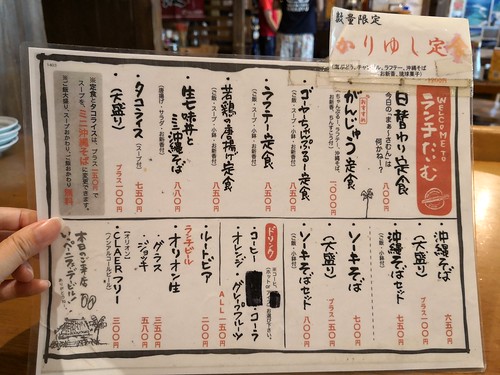 数量限定
かりゆし定食
WELCOME TO
ランチたいむ
日替わり定食
今日の「まぁーさむん」は
何かねー?
八〇〇
おすすめ
がんじゅう定食
一〇〇〇
ゴーヤちゃんぷるー定食
(ご飯・スープ・小鉢・お新香付)
ラフテー定食
(ご飯・スープ・小鉢・お新香付)
若鶏の唐揚げ定食
(ご飯・スープ・小鉢・お新香付)
生七味丼と
ミニ沖縄そば
八八〇
(唐揚げ・サラダ・お新香付)
タコライス
七五〇
(スープ付)
(大盛り)
プラス一〇〇
※定食とタコライスは、プラス150円で
スープを、ミニ沖縄そばに変更できます。
※ご飯大盛り、スープおかわり、ご飯おかわり無料
沖縄そば
六五〇
(大盛り)
プラス一五〇
沖縄そばセット
七五〇
(ご飯・小鉢付)
ソーキそば
七〇〇
(大盛り)
プラス一五〇
ソーキそばセット
八〇〇
(ご飯・小鉢付)
ドリンク
・コーヒー
・コーラ
・オレンジ・グレープフルーツ
ALL 一五〇
・ルートビア
二〇〇
ランチビール
・オリオン生
グラス
三五〇
ジョッキ
五八〇
(オリオン)
・CLAERフリー
三〇〇
(ノンアルコールビール)
本日のご来店